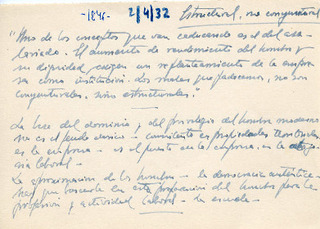 -1845-
2/4/32
Estructural, no coyuntural
"Uno de los conceptos que van caducando es el del asa-
lariado. El aumento de rendimiento del hombre y
su dignidad exigen un replanteamiento de la empre-
sa como institución. Los males que padecemos, no son
coyunturales, sino estructurales."
La base del dominio y del privilegio del hombre moderno
no es el feudo - consistente en propiedades
es la empresa - es el puesto en la empresa, es la
laboral -
La aproximación de los hombres - la democracia auténtica -
hay que buscarla en esta del hombre para la
profesión y actividad laboral - la escuela -